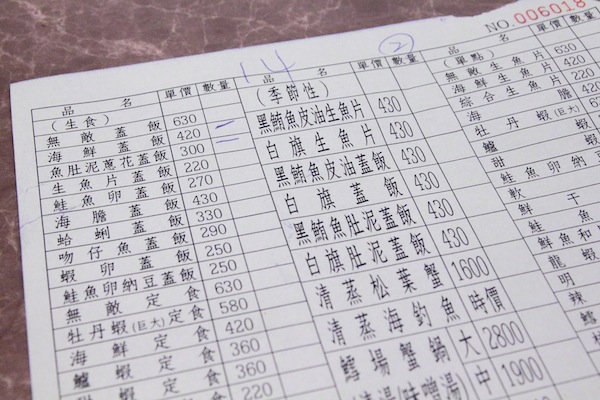 NO. 006018
14
②
品名 單價 數量
(生食)
無敵蓋飯 630
海鮮蓋飯 420
魚肚泥蔥花蓋飯 300
生魚片蓋飯 220
鮭魚卵蓋飯 270
海膽蓋飯 430
蛤蜊蓋飯 330
吻仔魚蓋飯 290
蝦卵蓋飯 250
鮭魚卵納豆蓋飯 250
無敵定食 630
牡丹蝦(巨大)定食 580
海鮮定食 420
鱸蝦定食 360
定食 360
220
品名 單價 數量
(季節性)
黑鮪魚皮油生魚片 430
白旗生魚片 430
黑鮪魚皮油蓋飯 430
白旗蓋飯 430
黑鮪魚肚泥蓋飯 430
白旗肚泥蓋飯 430
清蒸松葉蟹 1600
清蒸海釣魚 時價
鱈場蟹鍋 大 2800
中 1900
品名 單價 數量
(單點)
無敵生魚片 630
海鮮生魚片 420
綜合生魚片 220
海膽
牡丹蝦(巨大)
鱸
甜
鮭魚卵納
軟
鮮干
鮭魚
鮮魚和
龍蝦
明
辣